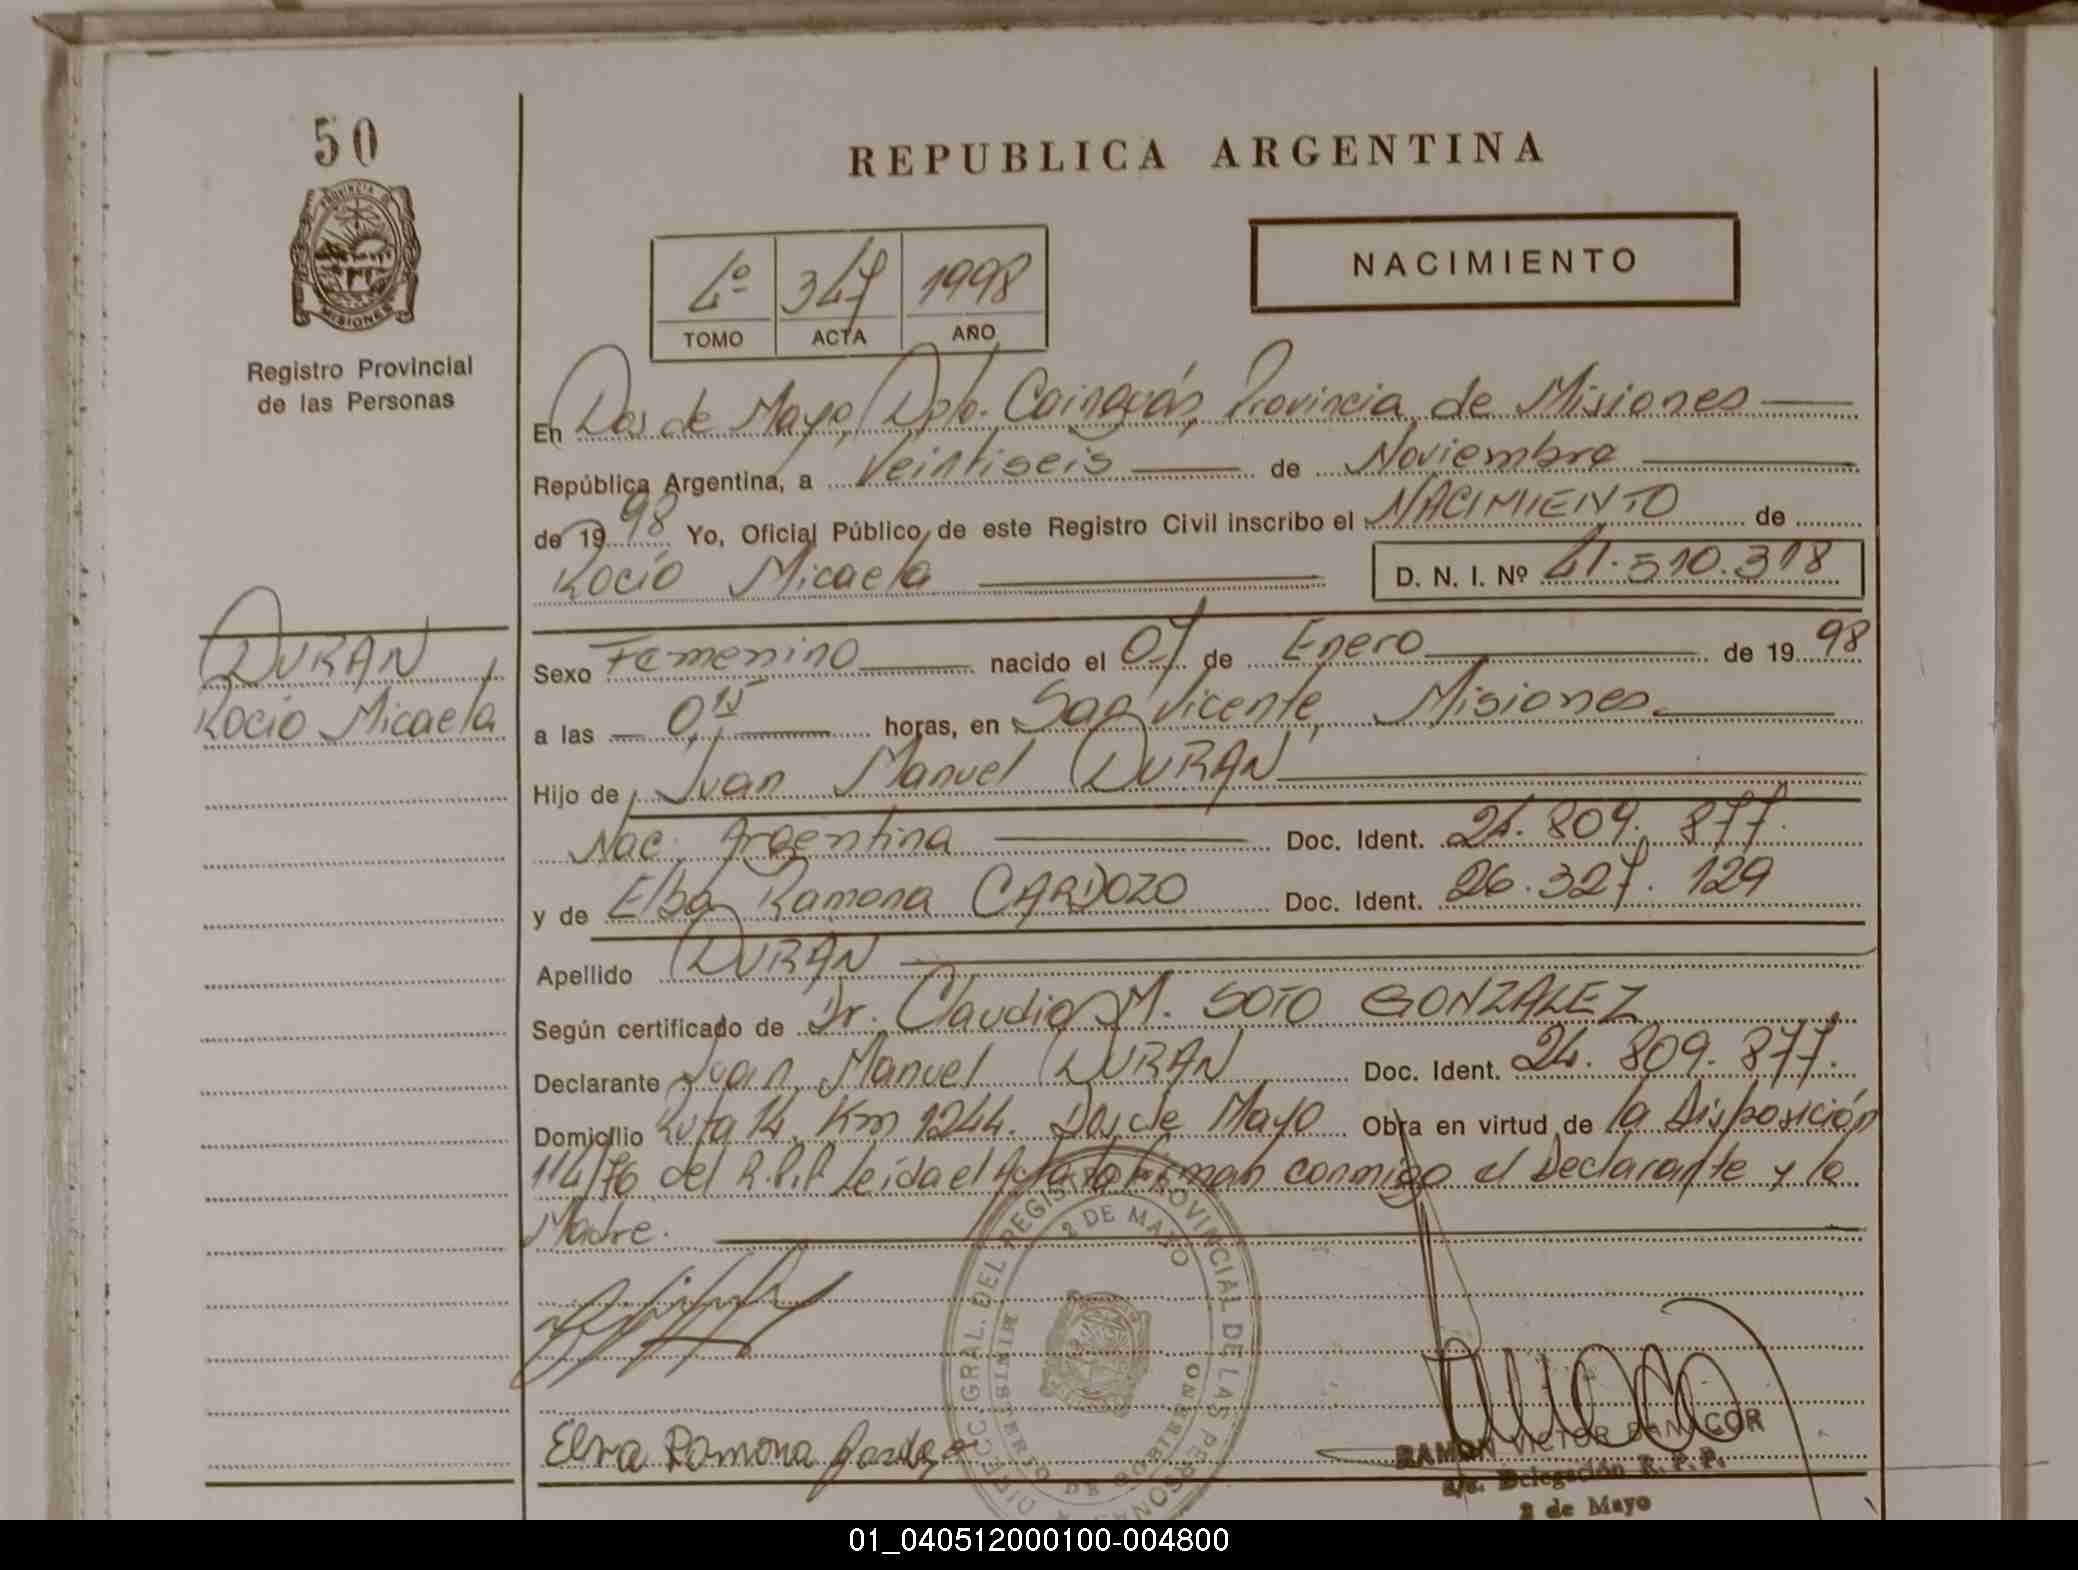 50
PROVINCIA DE
MISIONES
Registro Provincial
de las Personas
REPUBLICA ARGENTINA
4º 347 1998
TOMO ACTA AÑO
NACIMIENTO
En Dos de Mayo, Dpto. Cainguás, Provincia de Misiones
República Argentina, a Veintiseis de Noviembre
de 1998 Yo, Oficial Público de este Registro Civil inscribo el NACIMIENTO de
Rocío Micaela D. N. I. Nº 41.510.318
DURAN
Rocío Micaela
Sexo Femenino nacido el 07 de Enero de 1998
a las 0,15 horas, en San Vicente, Misiones.
Hijo de Juan Manuel DURAN
Nac. Argentina Doc. Ident. 24.809.877.
y de Elba Ramona CARDOZO Doc. Ident. 26.327.129
Apellido DURAN
Según certificado de Dr. Claudio M. SOTO GONZALEZ
Declarante Juan Manuel DURAN Doc. Ident. 24.809.877.
Domicilio Ruta 14. Km 1244. Dos de Mayo Obra en virtud de la Disposición
114/76 del R.P.P. Leída el Acta la firman conmigo el Declarante y la
Madre.
DIRECC. GRAL. DEL REGISTRO PROVINCIAL DE LAS PERSONAS
2 DE MAYO
MINISTERIO DE GOBIERNO
Elva Ramona
RAMON VICTOR
Delegación R. P. P.
2 de Mayo
01_040512000100-004800